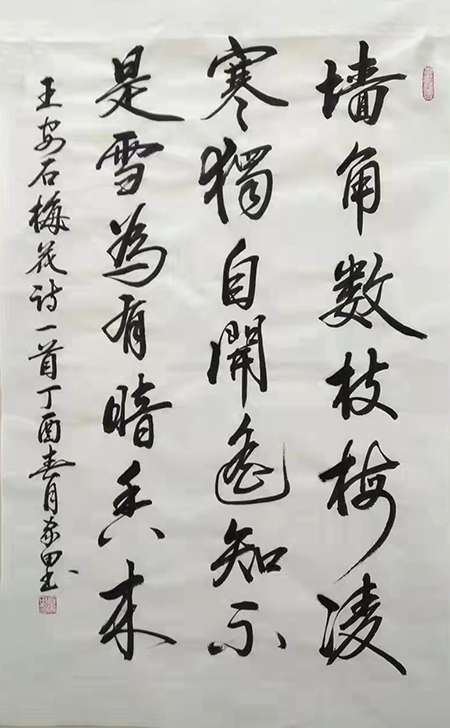 墙角数枝梅凌
寒獨自開遙知不
是雪為有暗香来
王安石梅花诗一首丁酉春月